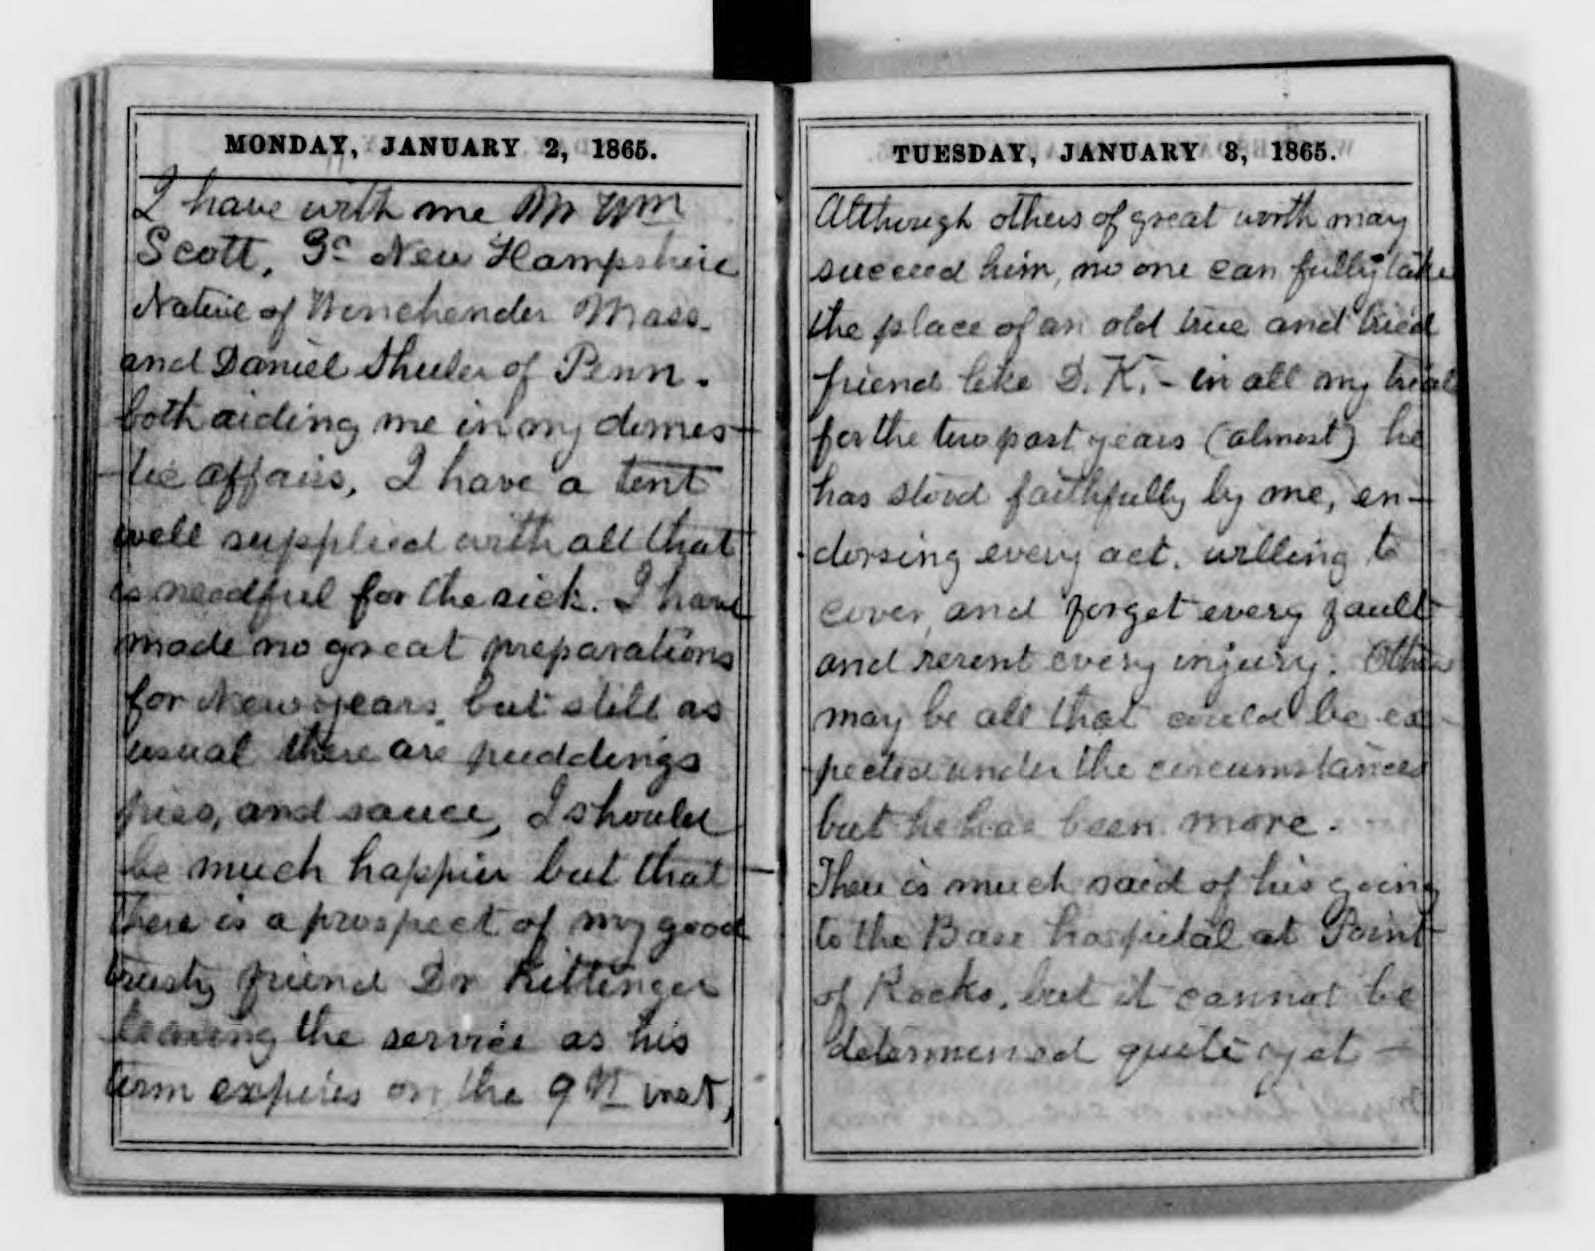 MONDAY, JANUARY 2, 1865.
I have with me Mr Wm
Scott, 3d New Hampshire
Native of Winchender Mass.
and Daniel Shuler of Penn.
both aiding me in my domes-
-tic affairs, I have a tent
well supplied with all that
is needful for the sick. I have
made no great preparations
for New years, but still as
usual there are puddings
pies, and sauce, I should
be much happier but that
there is a prospect of my good
trusty friend Dr Kittinger
leaving the service as his
term expires on the 9th inst,
TUESDAY, JANUARY 3, 1865.
Although others of great worth may
succeed him, no one can fully take
the place of an old true and tried
friend like D. K. - in all my trials
for the two past years (almost) he
has stood faithfully by me, en-
dorsing every act. willing to
cover, and forget every fault
and resent every injury. Others
may be all that could be ex-
pected under the circumstances
but he has been more.
There is much said of his going
to the Base hospital at Point
of Rocks, but it cannot be
determined quite yet -